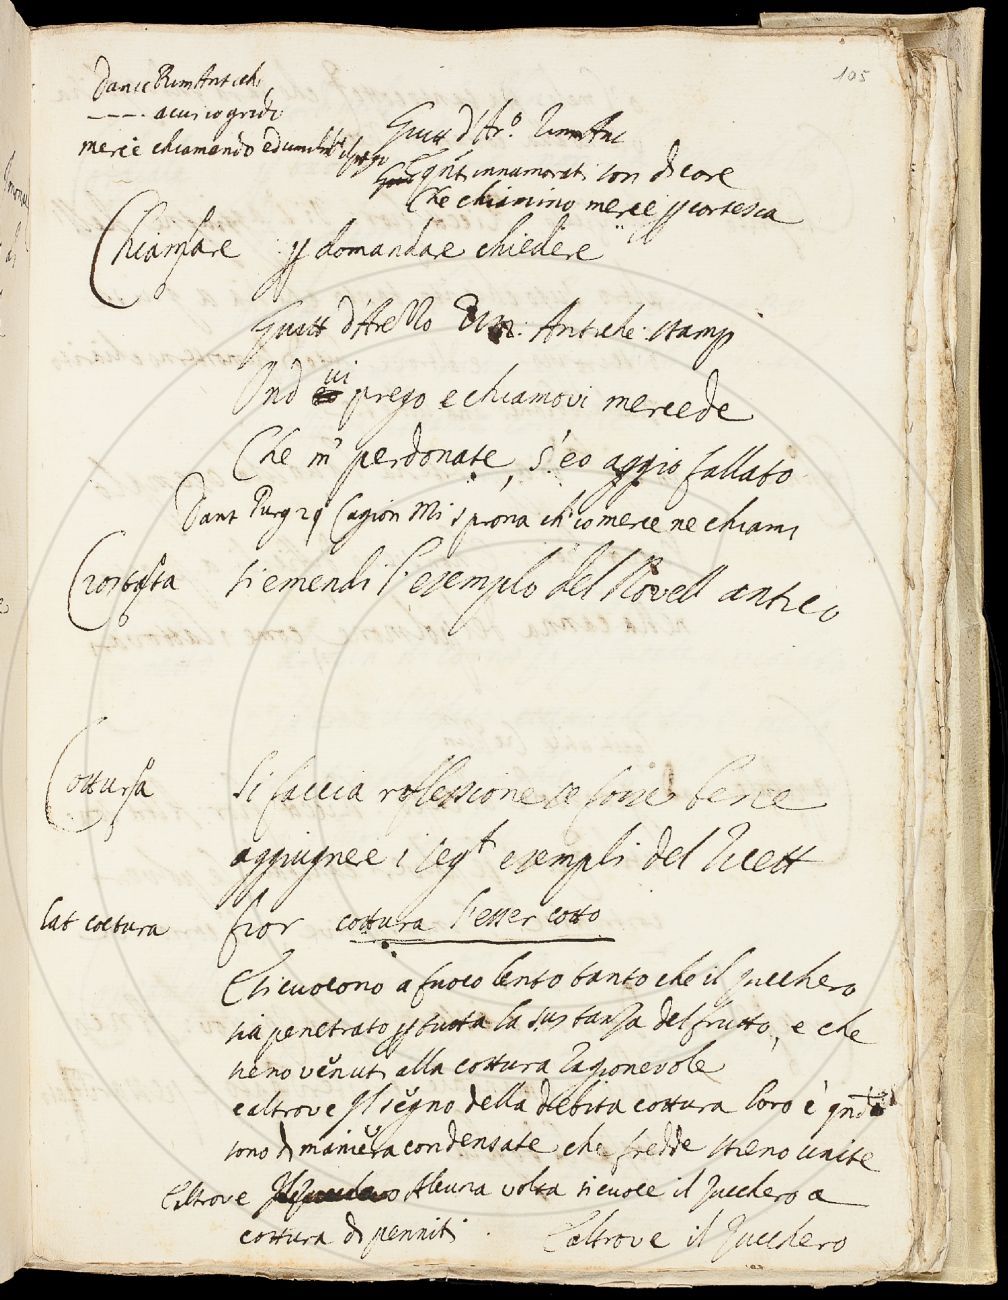 105
Dante Rim Antich
---- a cui io grido
merce chiamando ed umil
Guitt d'Ar.o Rim Ant
qnt innamorati son di core
Che chiamino merce p cortesia
Chiamare p domandare chiedere
Guitt d'Arezzo Rim: Antiche stamp
Ond vi prego e chiamovi mercede
Che m perdonate, s'eo aggio fallato
Dant Purg 29 Cagion mi sprona ch'io merce ne chiami
Crostata si emendi l'esempio del Novell antico
Cottura Si faccia reflessione se fosse bene
aggiugnere i segt esempli del Ricett
lat coctura fior cottura l'esser cotto
E si cuocono a fuoco lento tanto che il zucchero
sia penetrato p tutta la sustanza del frutto, e che
sieno venuti alla cottura ragionevole
e altrove Il segno della debita cottura loro è qndo
sono di maniera condensate che fredde stieno unite
E altrove Alcuna volta si cuoce il zucchero a
cottura di penniti E altrove il zucchero